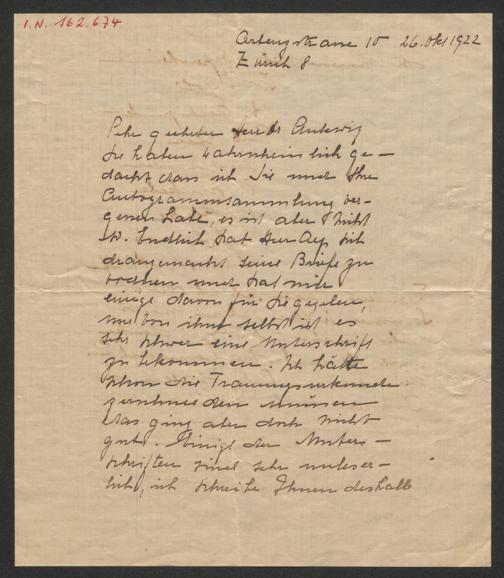 I.N. 162.674
26. Okt 1922
Zürich 8
Sehr geehrter Herr Dr
Sie haben wahrscheinlich ge-
dacht dass ich Sie und Ihre
Autogrammsammlung ver-
gessen habe, es ist aber nicht
so. Endlich hat Herr Arp sich
drangemacht seine Briefe zu
ordnen und hat mir
einige davon für Sie gegeben,
nur von ihm selbst ist es
sehr schwer eine Unterschrift
zu bekommen. Ich hätte
schon die Trauungsurkunde
zerschneiden müssen
das ging aber doch nicht
gut. Einige der Unter-
schriften sind sehr unleser-
lich, ich schreibe Ihnen deshalb